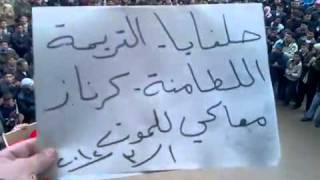 حلفايا - التريمسة
اللطامنة - كرناز
معاكي للموت
١/٣/٢٠١٢